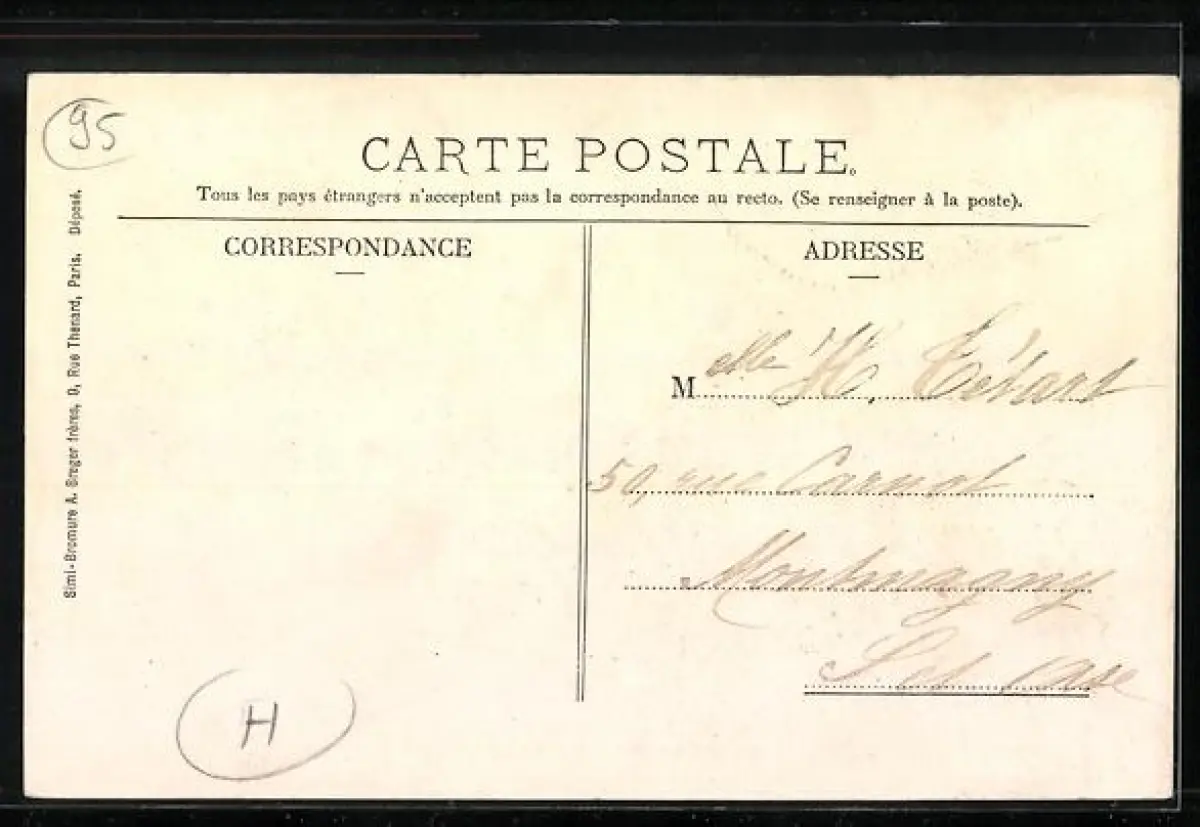 95
CARTE POSTALE.
Tous les pays étrangers n'acceptent pas la correspondance au recto. (Se renseigner à la poste).
CORRESPONDANCE
ADRESSE
Melle H. Tétart
50, rue Carnot
Montmagny
S. et Oise
H
Simi-Bromure A. Breger frères, 9, Rue Thénard, Paris. Déposé.